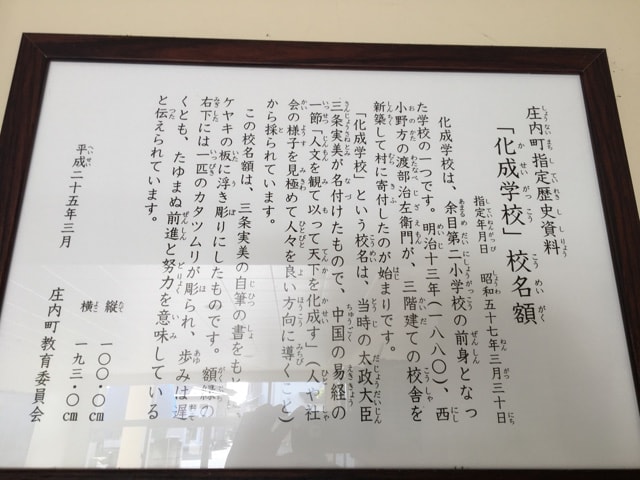 庄内町指定歴史資料
「化成学校」校名額
指定年月日　昭和五十七年三月三十日
化成学校は、余目第二小学校の前身となっ
た学校の一つです。明治十三年(一八八〇)、西
小野方の渡部治左衛門が、三階建ての校舎を
新築して村に寄付したのが始まりです。
「化成学校」という校名は、当時の太政大臣
三条実美が名付けたもので、中国の易経の
一節「人文を観て以って天下を化成す」(人や社
会の様子を見極めて人々を良い方向に導くこと)
から採られています。
この校名額は、三条実美の自筆の書をも
ケヤキの板に浮き彫りにしたものです。額縁の
右下には一匹のカタツムリが彫られ、歩みは遅
くとも、たゆまぬ前進と努力を意味している
と伝えられています。
縦　一〇〇・〇cm
横　一九三・〇cm
平成二十五年三月
庄内町教育委員会